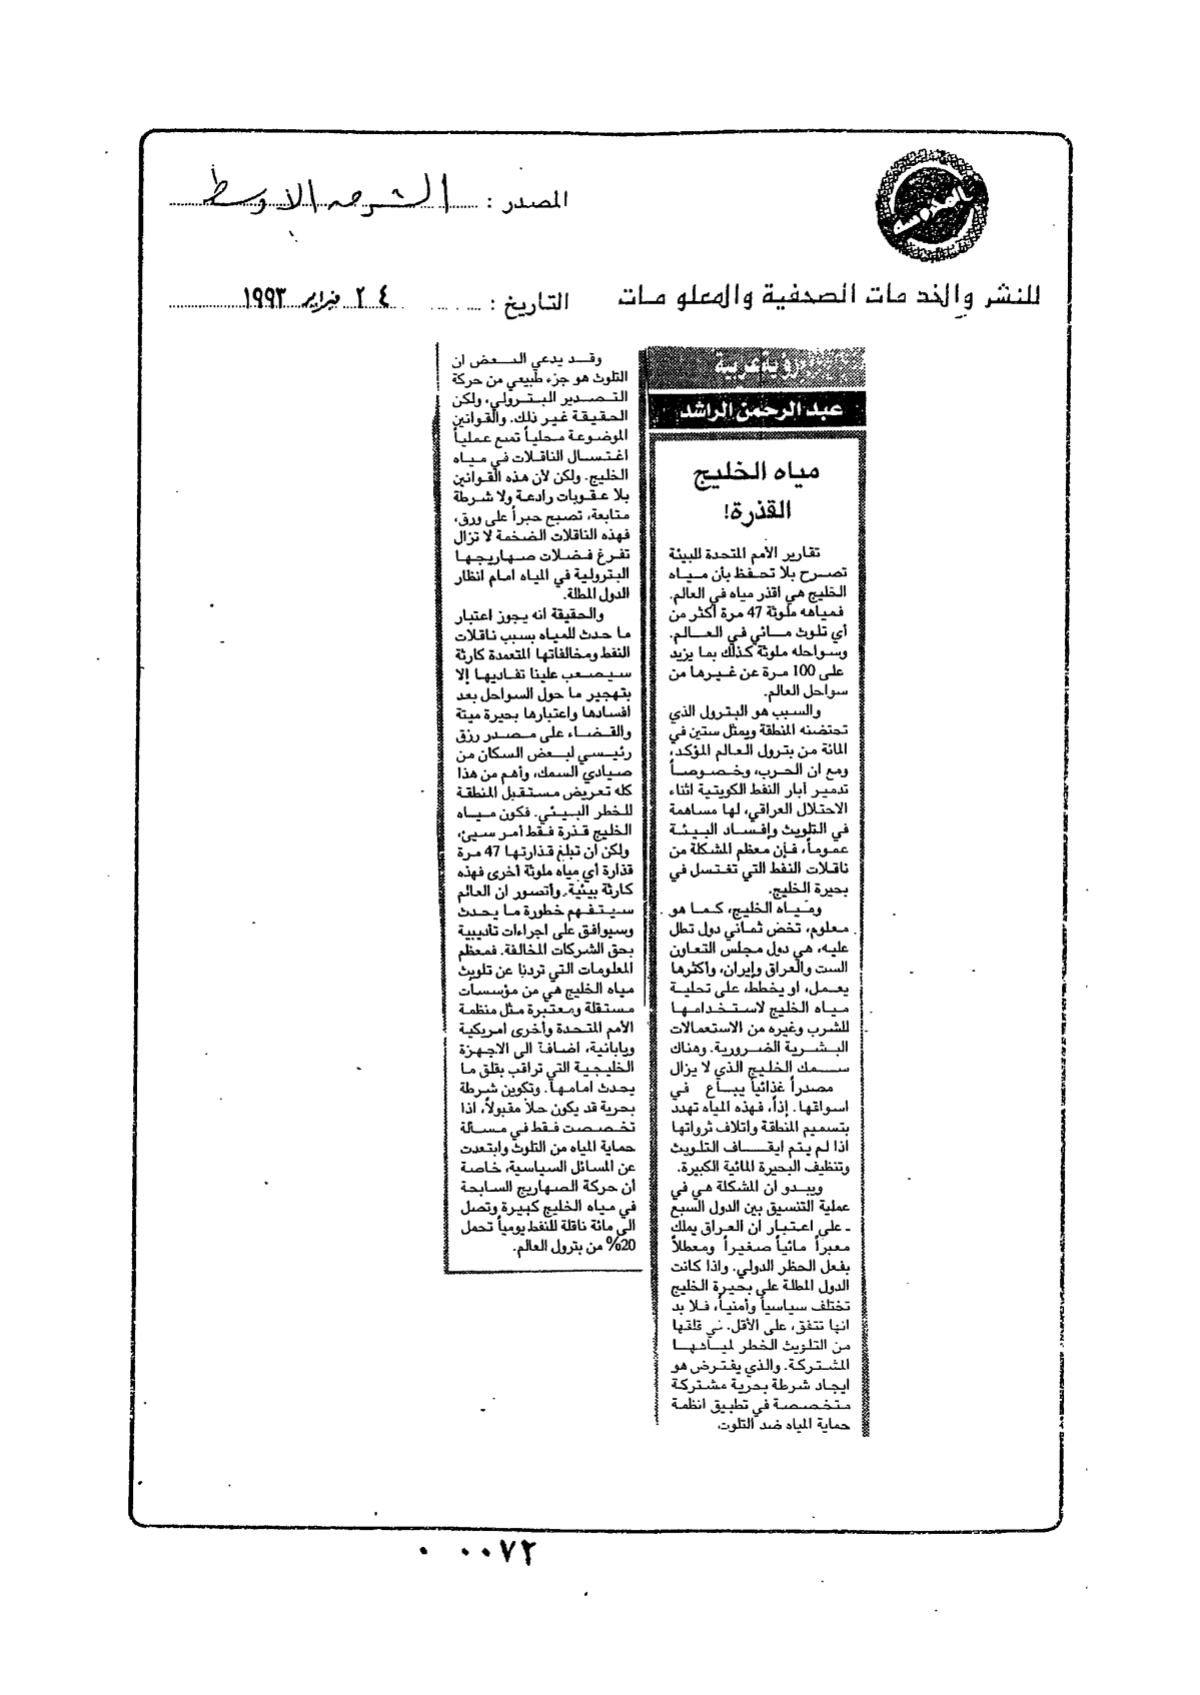 المصدر : الشرق الاوسط
للنشر والخدمات الصحفية والمعلومات
التاريخ : ٢٤ فبراير ١٩٩٣
رؤية عربية
عبد الرحمن الراشد
مياه الخليج
القذرة!
تقارير الأمم المتحدة للبيئة
تصرح بلا تحفظ بأن مياه
الخليج هي اقذر مياه في العالم.
فمياهه ملوثة 47 مرة أكثر من
أي تلوث مائي في العالم.
وسواحله ملوثة كذلك بما يزيد
على 100 مرة عن غيرها من
سواحل العالم.
والسبب هو البترول الذي
تحتضنه المنطقة ويمثل ستين في
المائة من بترول العالم المؤكد،
ومع ان الحرب، وخصوصاً
تدمير آبار النفط الكويتية اثناء
الاحتلال العراقي، لها مساهمة
في التلويث وإفساد البيئة
عموماً، فإن معظم المشكلة من
ناقلات النفط التي تغتسل في
بحيرة الخليج.
ومياه الخليج، كما هو
معلوم، تخض ثماني دول تطل
عليه، هي دول مجلس التعاون
الست والعراق وإيران، وأكثرها
يعمل، او يخطط، على تحلية
مياه الخليج لاستخدامها
للشرب وغيره من الاستعمالات
البشرية الضرورية. وهناك
سمك الخليج الذي لا يزال
مصدراً غذائياً يباع في
اسواقها. إذاً، فهذه المياه تهدد
بتسميم المنطقة واتلاف ثرواتها
اذا لم يتم ايقاف التلويث
وتنظيف البحيرة المائية الكبيرة.
ويبدو ان المشكلة هي في
عملية التنسيق بين الدول السبع
ـ على اعتبار ان العراق يملك
معبراً مائياً صغيراً ومعطلاً
بفعل الحظر الدولي. واذا كانت
الدول المطلة على بحيرة الخليج
تختلف سياسياً وأمنياً، فلا بد
انها تتفق، على الأقل. في قلقها
من التلويث الخطر لمياهها
المشتركة. والذي يفترض هو
ايجاد شرطة بحرية مشتركة
متخصصة في تطبيق انظمة
حماية المياه ضد التلوث.
وقد يدعي البعض ان
التلوث هو جزء طبيعي من حركة
التصدير البترولي، ولكن
الحقيقة غير ذلك. والقوانين
الموضوعة محلياً تمنع عملياً
اغتسال الناقلات في مياه
الخليج. ولكن لأن هذه القوانين
بلا عقوبات رادعة ولا شرطة
متابعة، تصبح حبراً على ورق،
فهذه الناقلات الضخمة لا تزال
تفرغ فضلات صهاريجها
البترولية في المياه امام انظار
الدول المطلة.
والحقيقة انه يجوز اعتبار
ما حدث للمياه بسبب ناقلات
النفط ومخالفاتها المتعمدة كارثة
سيصعب علينا تفاديها إلا
بتهجير ما حول السواحل بعد
افسادها واعتبارها بحيرة ميتة
والقضاء على مصدر رزق
رئيسي لبعض السكان من
صيادي السمك، وأهم من هذا
كله تعريض مستقبل المنطقة
للخطر البيئي. فكون مياه
الخليج قذرة فقط أمر سيئ،
ولكن ان تبلغ قذارتها 47 مرة
قذارة أي مياه ملوثة أخرى فهذه
كارثة بيئية. وأتصور ان العالم
سيتفهم خطورة ما يحدث
وسيوافق على اجراءات تأديبية
بحق الشركات المخالفة. فمعظم
المعلومات التي تردنا عن تلويث
مياه الخليج هي من مؤسسات
مستقلة ومعتبرة مثل منظمة
الأمم المتحدة وأخرى امريكية
ويابانية، اضافة الى الاجهزة
الخليجية التي تراقب بقلق ما
يحدث امامها. وتكوين شرطة
بحرية قد يكون حلاً مقبولاً، اذا
تخصصت فقط في مسألة
حماية المياه من التلوث وابتعدت
عن المسائل السياسية، خاصة
أن حركة الصهاريج السابحة
في مياه الخليج كبيرة وتصل
الى مائة ناقلة للنفط يومياً تحمل
20% من بترول العالم.
٠ ٠٠٧٢